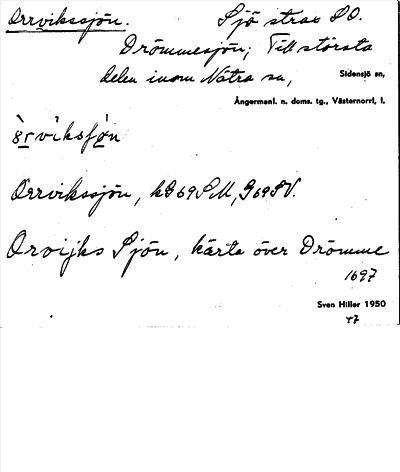 Orrvikssjön. Sjö strax SO.
Drömmesjön; Till största
delen inom Nätra sn, Sidensjö sn,
Ångermanl. n. doms. tg., Västernorrl. l.
Orrvikssjön, kG 69 SM, G 69 SV.
Orvijks Sjön, karta över Drömme
1697
Sven Hiller 1950